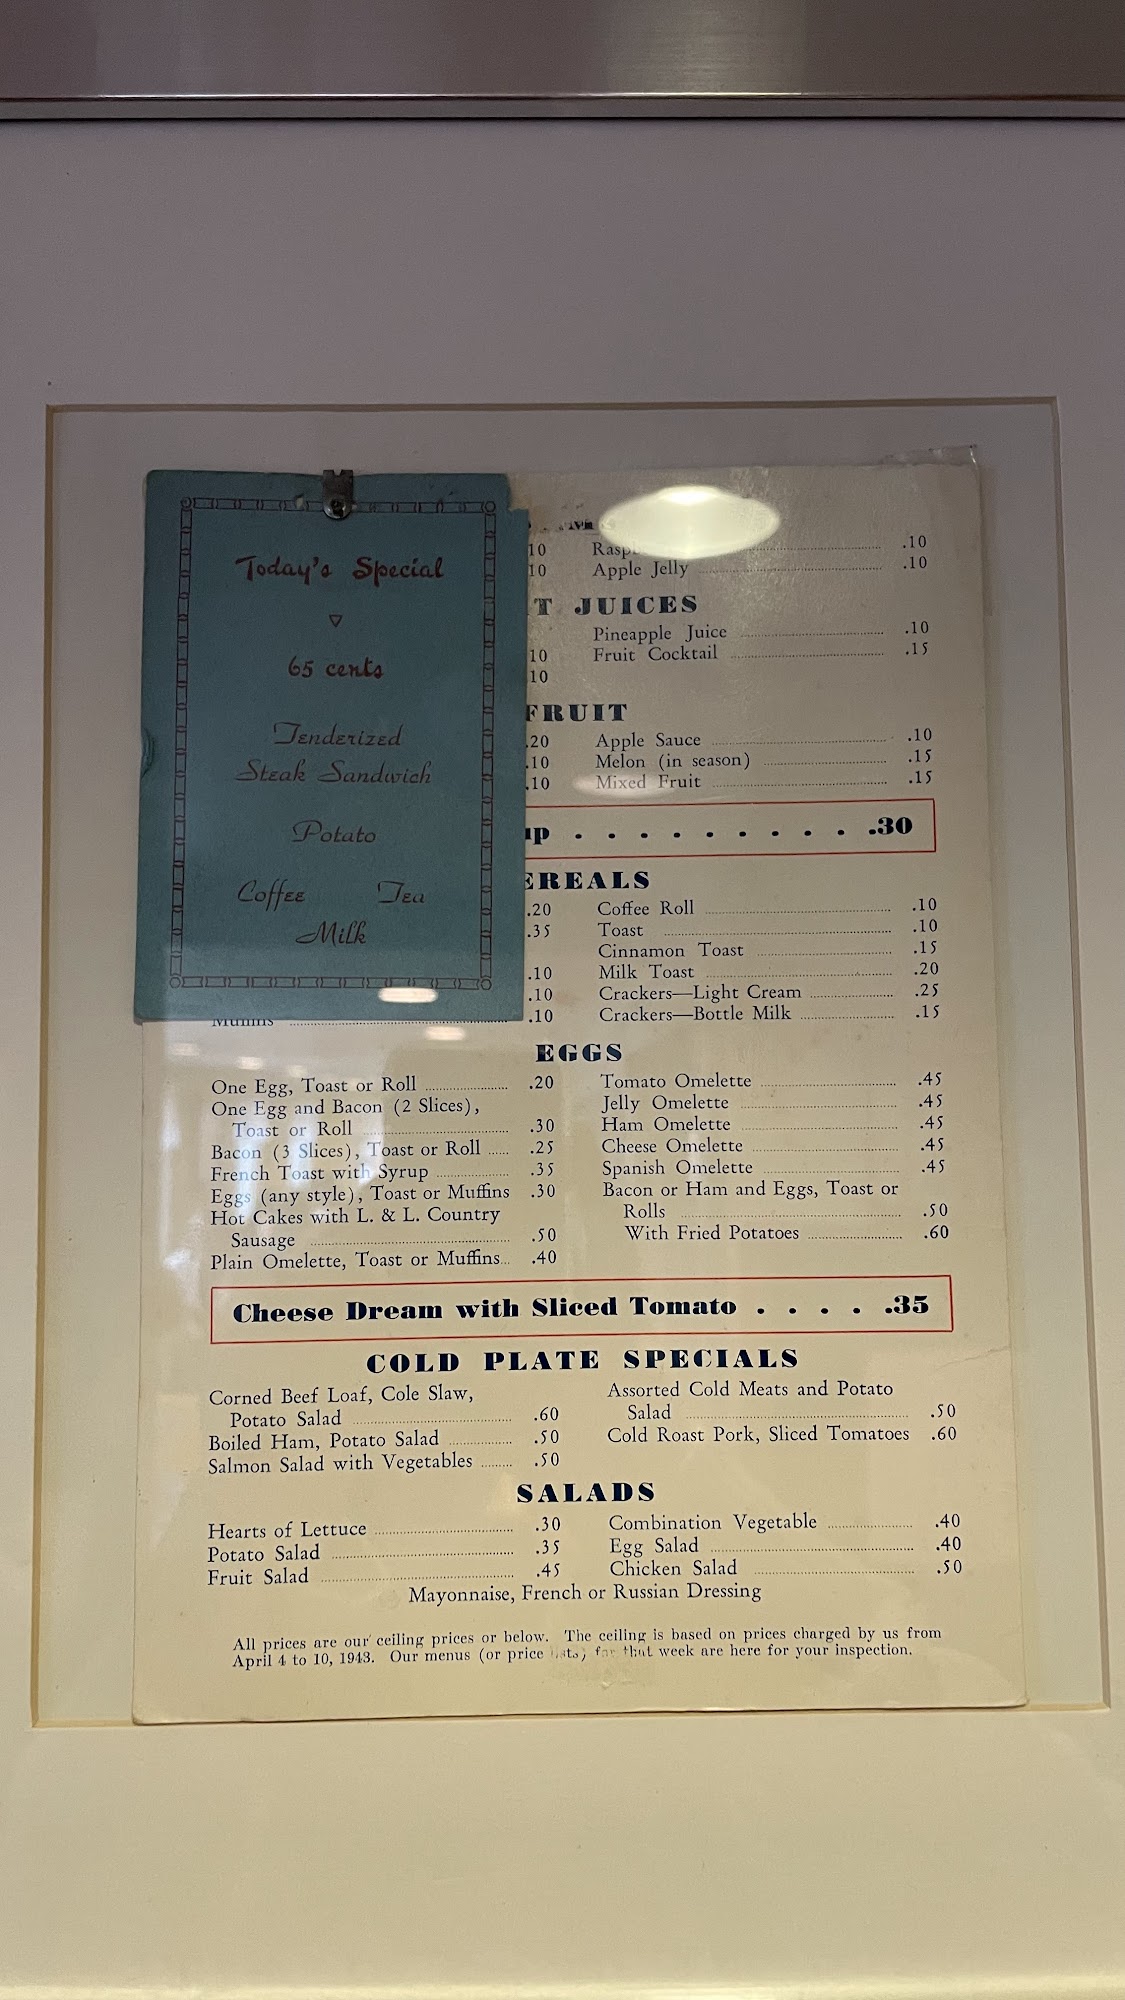 Today's Special
65 cents
Tenderized
Steak Sandwich
Potato
Coffee Tea
Milk
10 .10
10 Apple Jelly .10
T JUICES
Pineapple Juice .10
10 Fruit Cocktail .15
10
FRUIT
.20 Apple Sauce .10
.10 Melon (in season) .15
.10 Mixed Fruit .15
up . . . . . . . . . .30
EREALS
.20 Coffee Roll .10
.35 Toast .10
Cinnamon Toast .15
.10 Milk Toast .20
.10 Crackers—Light Cream .25
Muffins .10 Crackers—Bottle Milk .15
EGGS
One Egg, Toast or Roll .20
One Egg and Bacon (2 Slices),
Toast or Roll .30
Bacon (3 Slices), Toast or Roll .25
French Toast with Syrup .35
Eggs (any style), Toast or Muffins .30
Hot Cakes with L. & L. Country
Sausage .50
Plain Omelette, Toast or Muffins .40
Tomato Omelette .45
Jelly Omelette .45
Ham Omelette .45
Cheese Omelette .45
Spanish Omelette .45
Bacon or Ham and Eggs, Toast or
Rolls .50
With Fried Potatoes .60
Cheese Dream with Sliced Tomato . . . . .35
COLD PLATE SPECIALS
Corned Beef Loaf, Cole Slaw,
Potato Salad .60
Boiled Ham, Potato Salad .50
Salmon Salad with Vegetables .50
Assorted Cold Meats and Potato
Salad .50
Cold Roast Pork, Sliced Tomatoes .60
SALADS
Hearts of Lettuce .30
Potato Salad .35
Fruit Salad .45
Combination Vegetable .40
Egg Salad .40
Chicken Salad .50
Mayonnaise, French or Russian Dressing
All prices are our ceiling prices or below. The ceiling is based on prices charged by us from
April 4 to 10, 1943. Our menus (or price lists) for that week are here for your inspection.